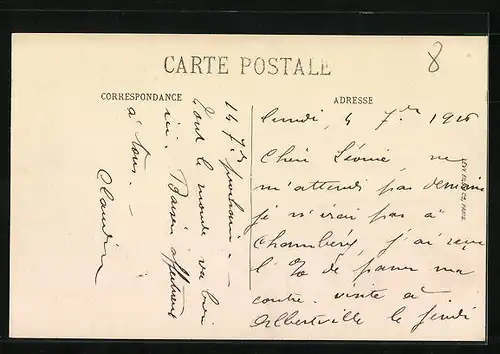 CARTE POSTALE
8
CORRESPONDANCE
ADRESSE
Lundi, 4 7bre 1916
Cher Léonie ne
m'attends pas demain
je n'irai pas à
Chambéry, j'ai reçu
l'O. de passer ma
contre-visite à
Albertville le jeudi
14 7bre prochain. -
Tout le monde va bien
ici. Baisers affectueux
à tous. -
Claudin